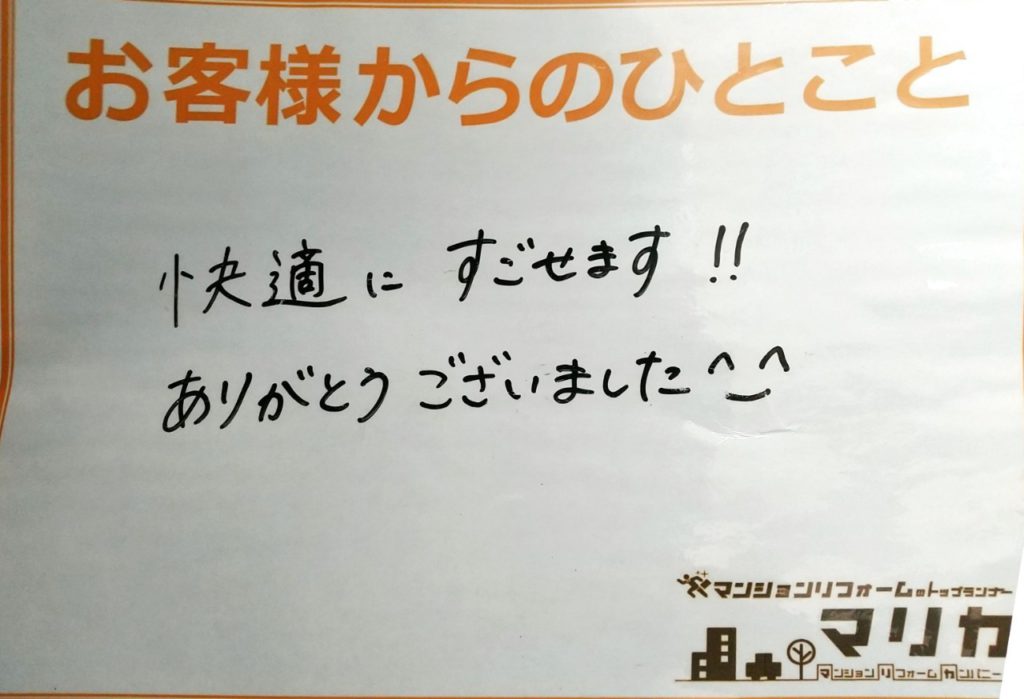 お客様からのひとこと
快適に すごせます!!
ありがとう ございました^_^
マンションリフォームのトップランナー
マリカ
マンションリフォームカンパニー